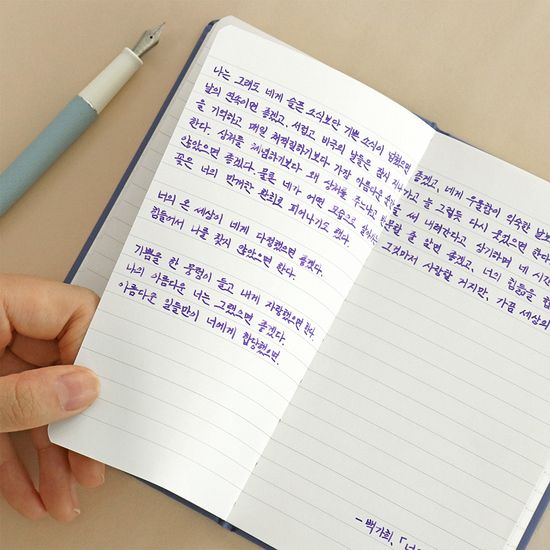 나는 그래도 네게 슬픈 소식보단 기쁜 소식이 넘쳤으면 좋겠고, 네게 우울함이 익숙한
날의 연속이면 좋겠고, 서럽고 날들은 잠시 지나가고 늘 그랬듯 다시 웃었으면 한다.
을 기억하고 매일 자책하기보다 가장 아름다운 순간을 써 내려간다고 생각하며 네 시간
한다. 상처를 왜 상처를 반문할 줄 알면 좋겠고, 너의 힘듦을
않았으면 좋겠다. 물론 네가 어떤 모습으로 그것마저 사랑할 거지만, 가끔 세상의
꽃은 너의 환희로 피어나기도 했다.
너의 온 세상이 네게 다정했으면 좋겠다.
힘들어서 나를 찾지 않았으면 한다.
기쁨을 한 뭉텅이 들고 내게 자랑했으면 한다.
나의 아름다운 너는 그랬으면 좋겠다.
아름다운 일들만이 너에게 합당했으면.
- 백가희, 「